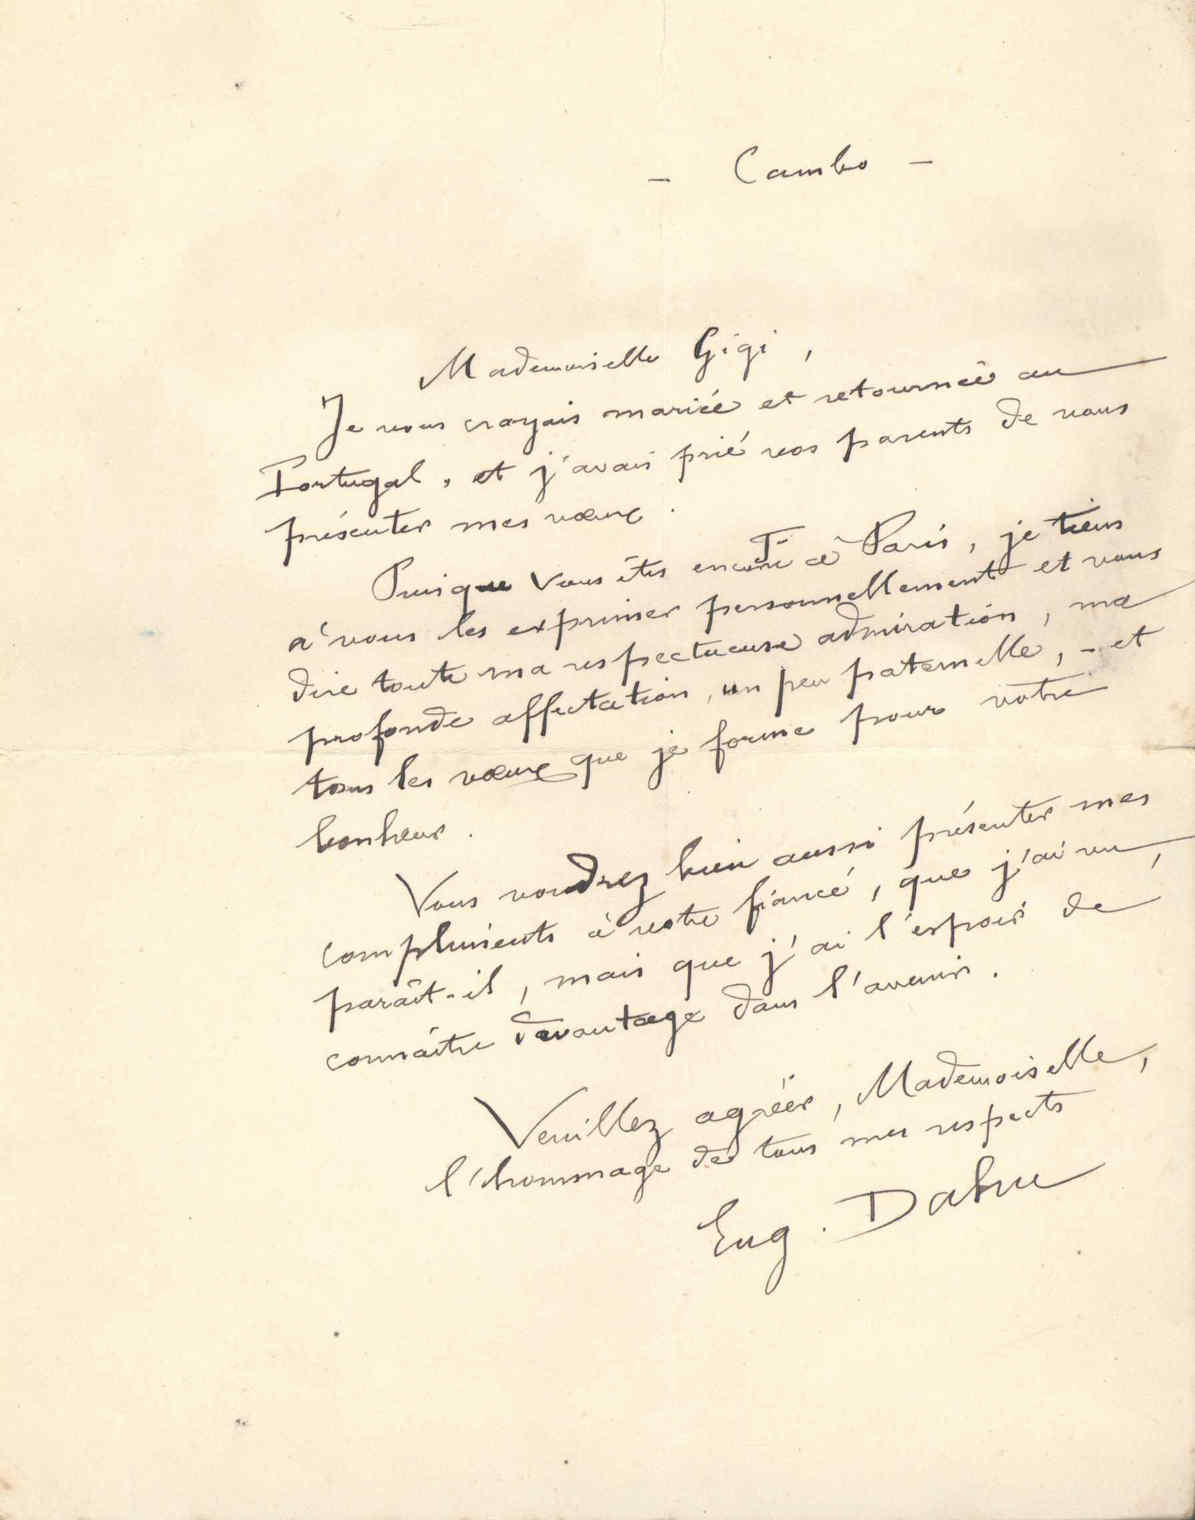 - Cambo -
Mademoiselle Gigi,
Je vous croyais mariée et retournée au
Portugal, et j'avais prié vos parents de vous
présenter mes vœux.
Puisque vous êtes encore à Paris, je tiens
à vous les exprimer personnellement et vous
dire toute ma respectueuse admiration, ma
profonde affectation, un peu paternelle, - et
tous les vœux que je forme pour votre
bonheur.
Vous voudrez bien aussi présenter mes
compliments à votre fiancé, que j'ai vu,
paraît-il, mais que j'ai l'espoir de
connaître davantage dans l'avenir.
Veuillez agréer, Mademoiselle,
l'hommage de tous mes respects
Eug.